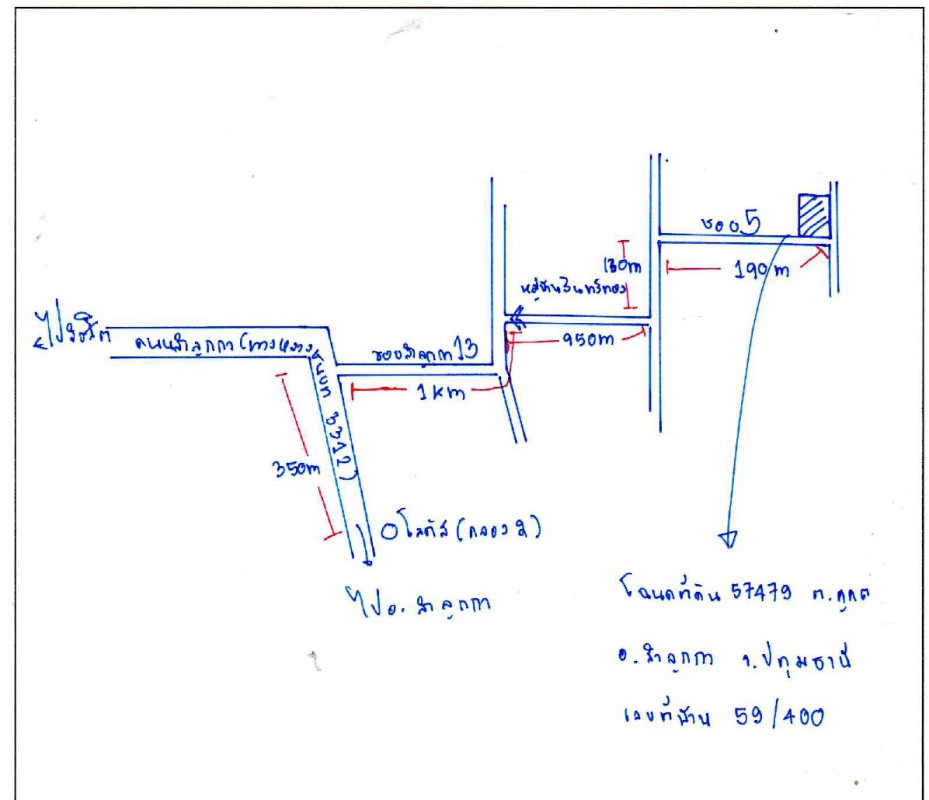 ซอย 5
130m
190m
หมู่บ้านรินทร์ทอง
950m
ไปรังสิต
ถนนลำลูกกา (ทางหลวงชนบท 3312)
ซอยลำลูกกา 13
1km
350m
โลตัส (คลอง 2)
ไป อ. ลำลูกกา
โฉนดที่ดิน 57479 ต. คูคต
อ. ลำลูกกา จ. ปทุมธานี
เลขที่บ้าน 59/400